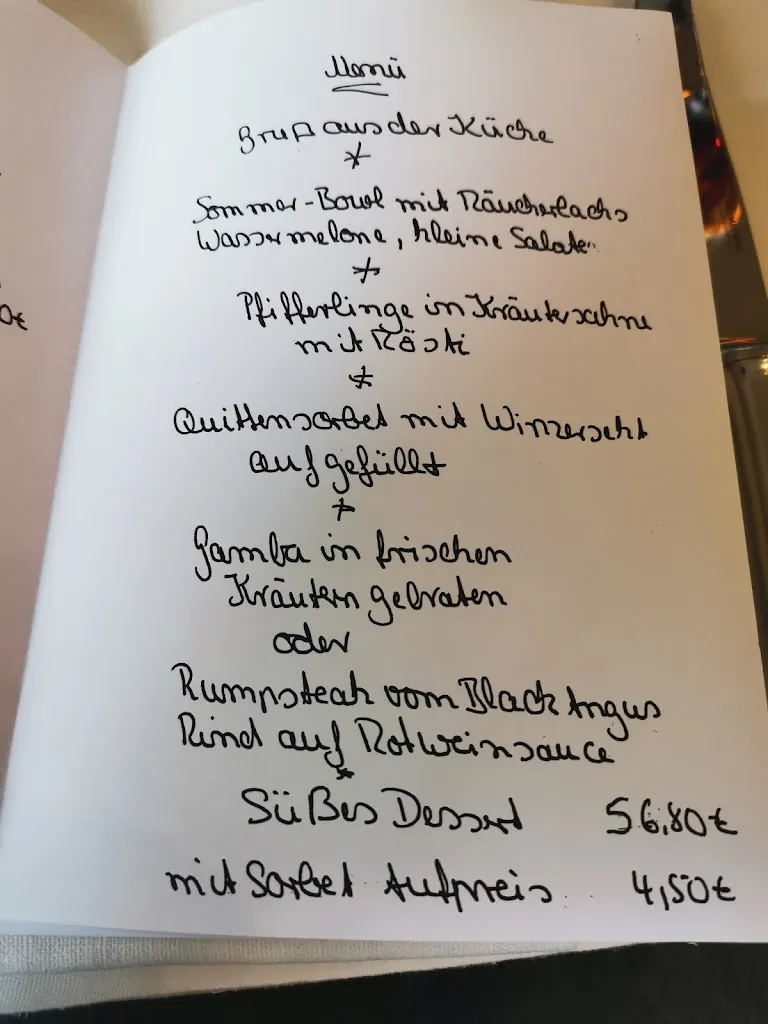 0€
Menü
Gruß aus der Küche
*
Sommer-Bowl mit Räucherlachs
Wassermelone, kleine Salate
*
Pfifferlinge in Kräutersahne
mit Rösti
*
Quittensorbet mit Winzersekt
aufgefüllt
*
Gamba in frischen
Kräutern gebraten
oder
Rumpsteak vom Black Angus
Rind auf Rotweinsauce
*
Süßes Dessert 56,80€
mit Sorbet Aufpreis 4,50€